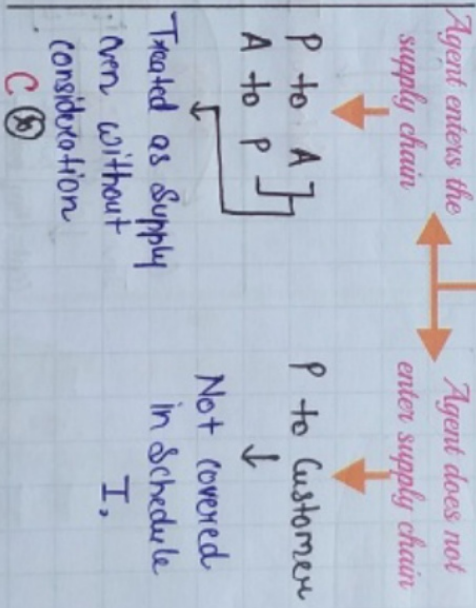 Agent enters the
supply chain
P to A
A to P
Treated as Supply
even without
consideration
C
Agent does not
enter supply chain
P to Customer
Not covered
in Schedule
I,